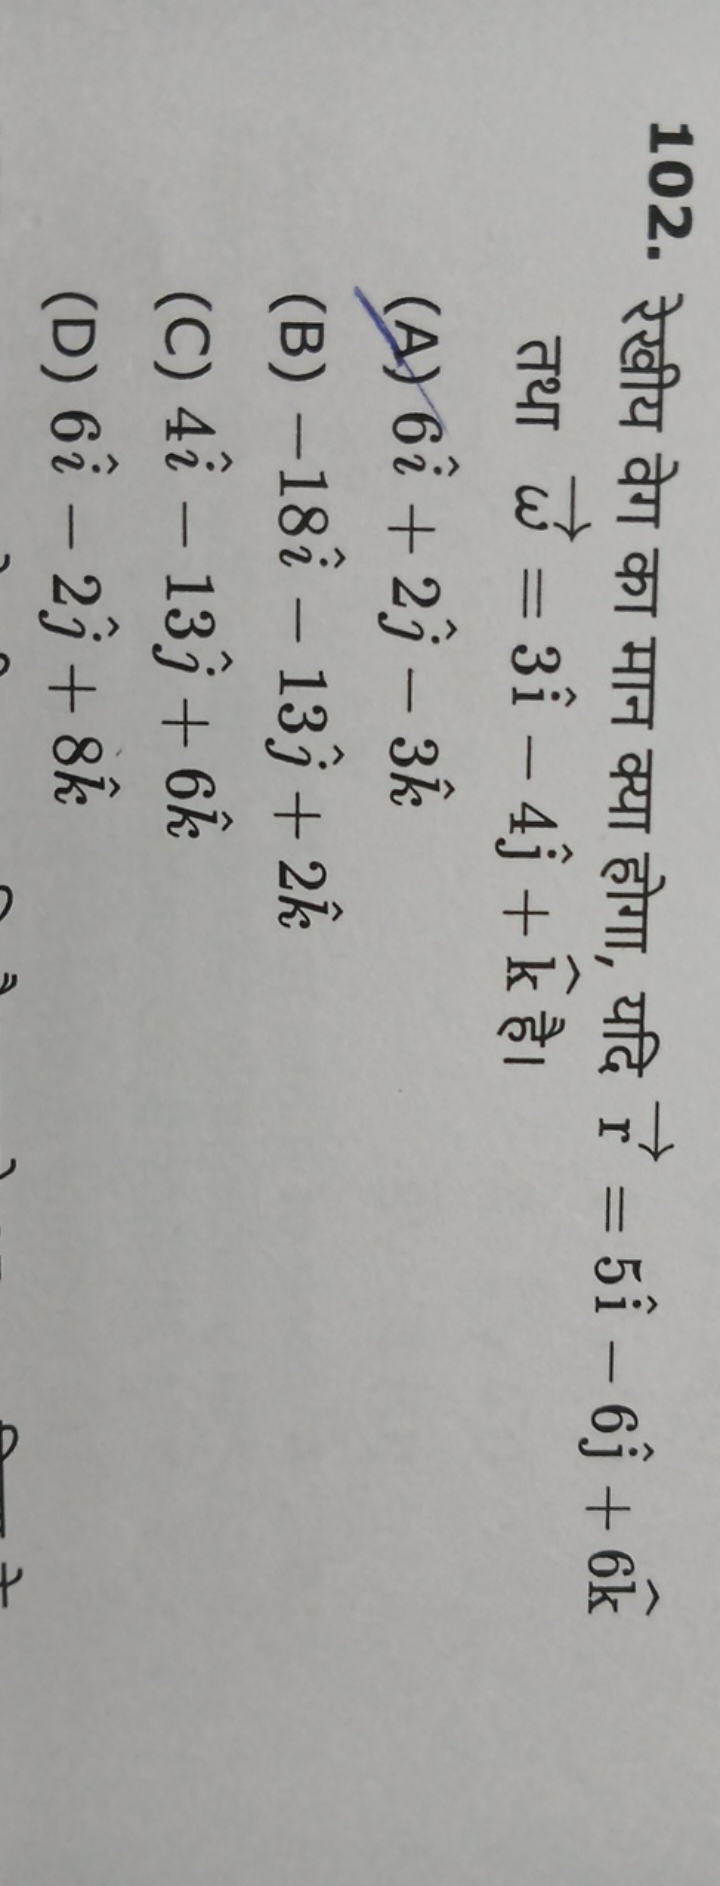 102. रेखीय वेग का मान क्या होगा, यदि r⃗ = 5î − 6ĵ + 6k̂
तथा ω⃗ = 3î − 4ĵ + k̂ है।
(A) 6î + 2ĵ − 3k̂
(B) −18î − 13ĵ + 2k̂
(C) 4î − 13ĵ + 6k̂
(D) 6î − 2ĵ + 8k̂